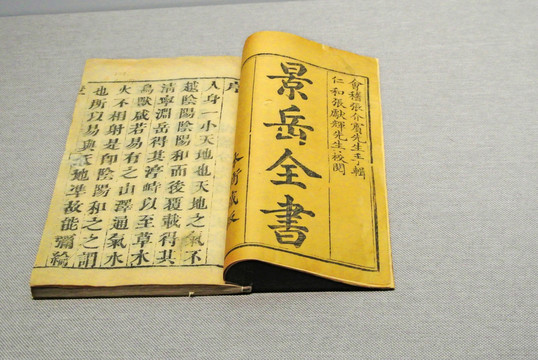 會稽張介賓先生手輯
仁和張獻輝先生校閱
景岳全書
序
人身一小天地也天地之氣不
越陰陽陰陽和而後覆載得其
清寧淵岳得其渟峙以至草木
鳥獸咸若易有之山澤通氣水
火不相射是卽陰陽和之之謂
也所以易與天地準故能彌綸